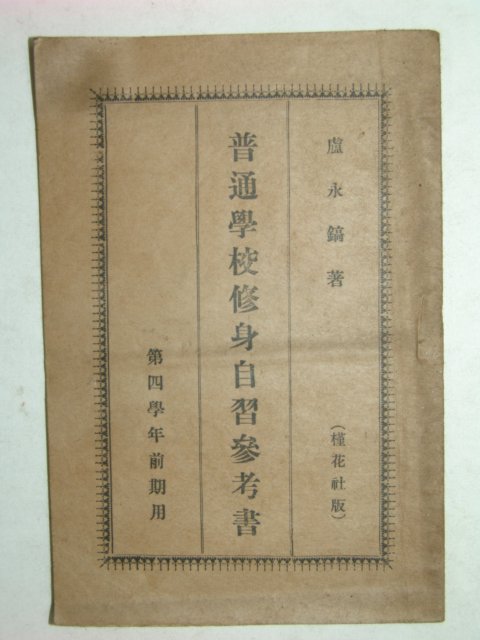 盧永鎬著
(槿花社版)
普通學校修身自習參考書
第四學年前期用